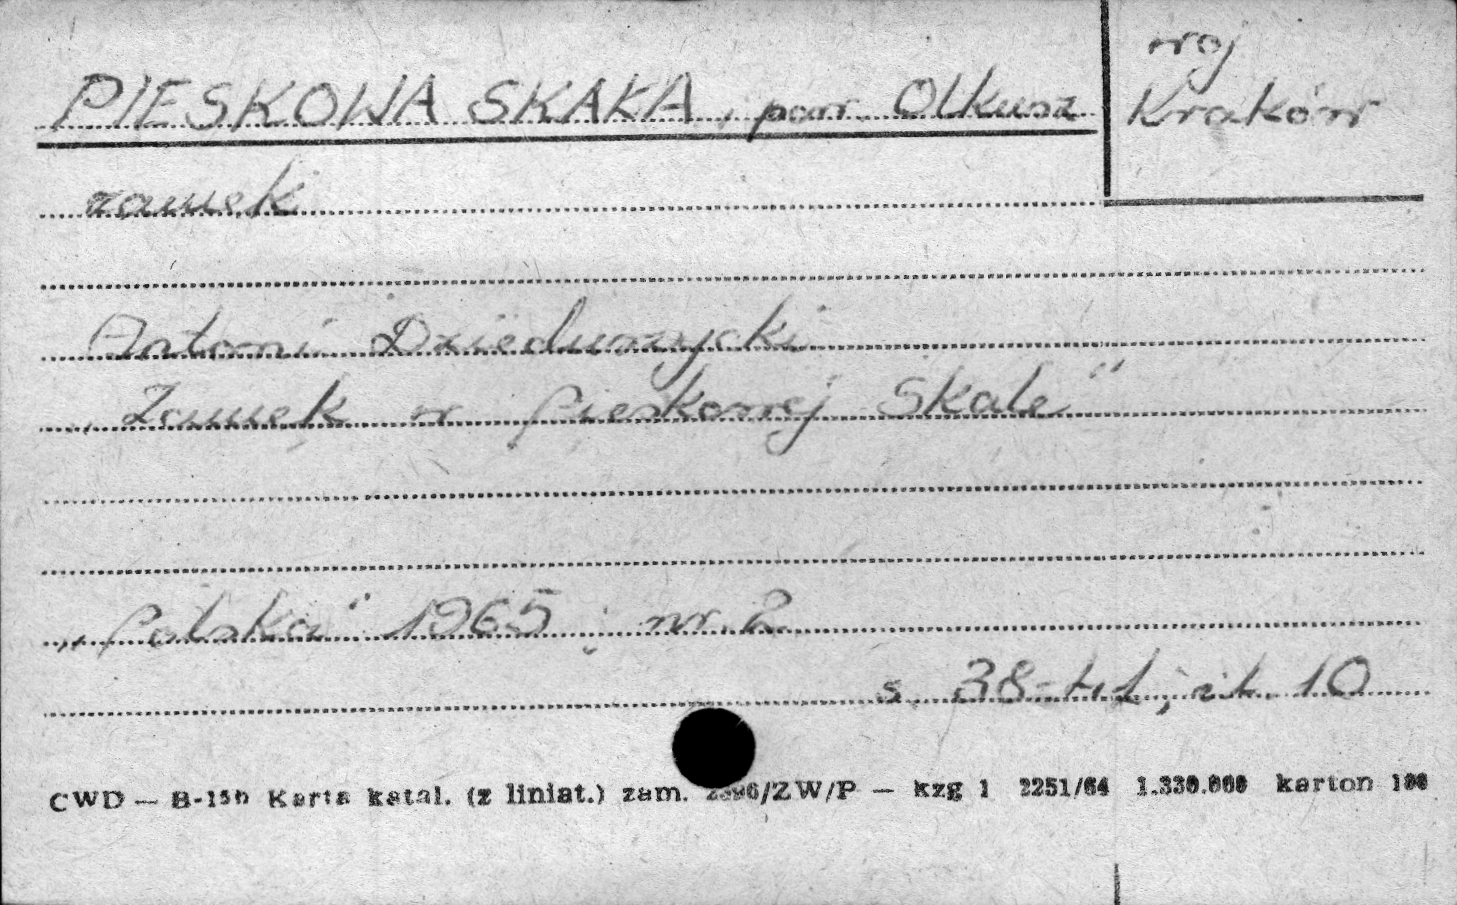 PIESKOWA SKAŁA, pow. Olkusz
woj
Kraków
zamek
Antoni Dzieduszycki
„Zamek w Pieskowej Skale"
„Polska" 1965; nr. 2
s. 38-41; il. 10
CWD — B-15b Karta katal. (z liniat.) zam. /ZW/P — kzg 1 2251/64 1.330.000 karton